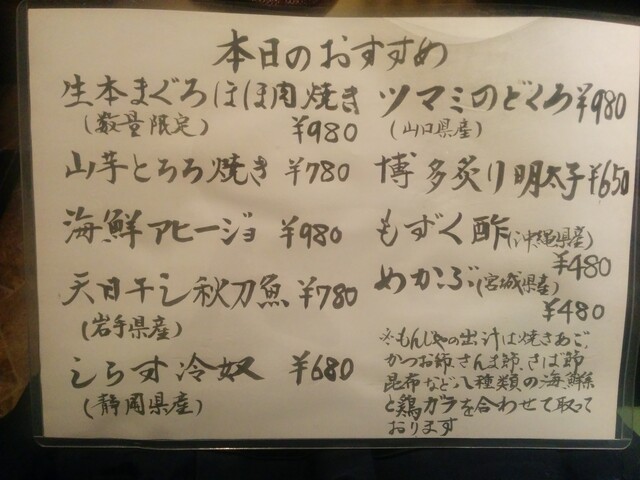 本日のおすすめ
生本まぐろほほ肉焼き
(数量限定) ¥980
山芋とろろ焼き ¥780
海鮮アヒージョ ¥980
天日干し秋刀魚 ¥780
(岩手県産)
しらす冷奴 ¥680
(静岡県産)
ツマミのどくろ ¥980
(山口県産)
博多炙り明太子 ¥650
もずく酢(沖縄県産)
¥480
めかぶ(宮城県産)
¥480
※もんじゃの出汁は焼きあご、
かつお節、さんま節、さば節
昆布など、八種類の海鮮系
と鶏ガラを合わせて取って
おります